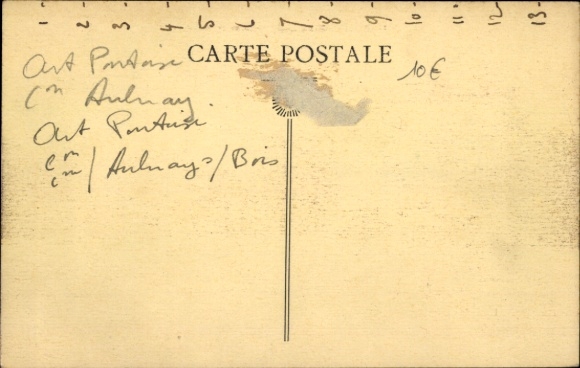 1 2 3 4 5 6 7 8 9 10 11 12 13
CARTE POSTALE
10€
Art Pontoise
Con Aulnay
Art Pontoise
Con / Aulnay s/Bois